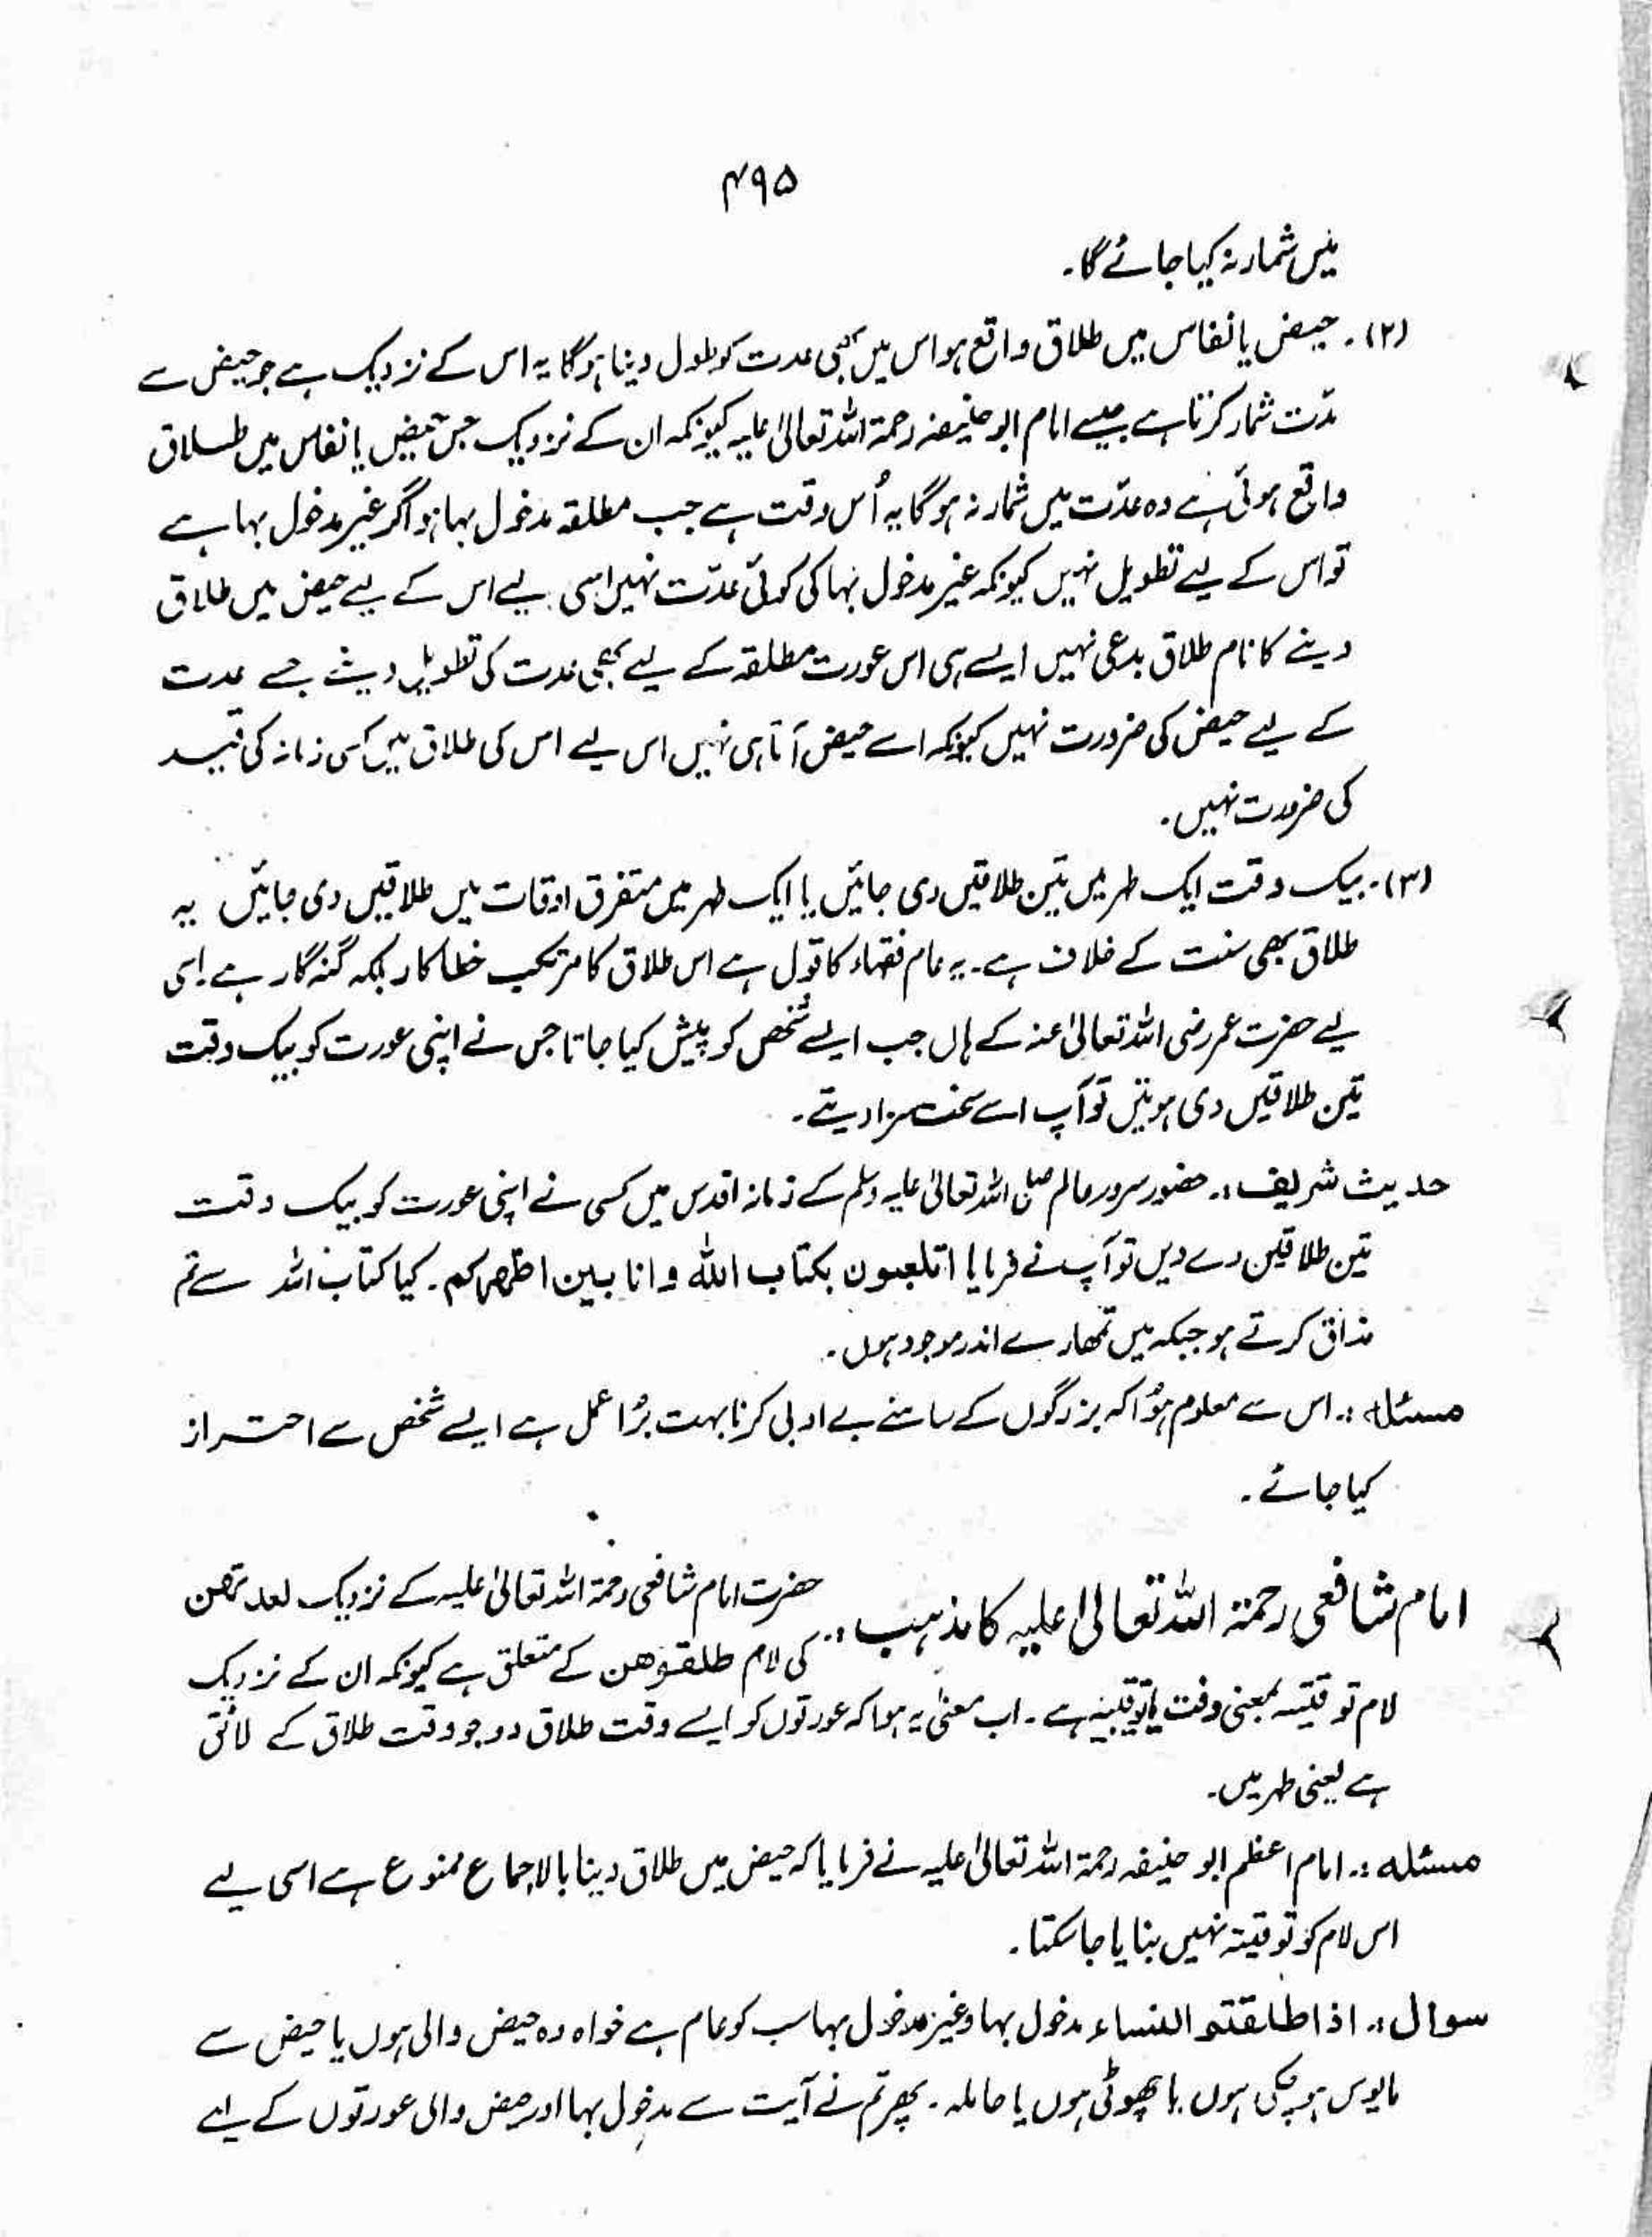 ۴۹۵
میں شمار نہ کیا جائے گا۔
(۲)۔ حیض یا نفاس میں طلاق واقع ہو اس میں بھی عدت کو طول دینا ہوگا یہ اس کے نزدیک ہے جو حیض سے
مدّت شمار کرتا ہے جیسے امام ابو حنیفہ رحمۃ اللہ تعالیٰ علیہ کیونکہ ان کے نزدیک جس حیض یا نفاس میں طلاق
واقع ہوئی ہے وہ عدّت میں شمار نہ ہوگا یہ اُس وقت ہے جب مطلقہ مدخول بہا ہو اگر غیر مدخول بہا ہے
تو اس کے لیے تطویل نہیں کیونکہ غیر مدخول بہا کی کوئی عدّت نہیں اسی لیے اس کے لیے حیض میں طلاق
دینے کا نام طلاق بدعی نہیں ایسے ہی اس عورت مطلقہ کے لیے بھی عدت کی تطویل دیث جسے عدت
کے لیے حیض کی ضرورت نہیں کیونکہ اسے حیض آتا ہی نہیں اس لیے اس کی طلاق میں کسی زمانہ کی قید
کی ضرورت نہیں۔
(۳)۔ بیک وقت ایک طہر میں تین طلاقیں دی جائیں یا ایک طہر میں متفرق اوقات میں طلاقیں دی جائیں یہ
طلاق بھی سنت کے خلاف ہے۔ یہ عام فقہاء کا قول ہے اس طلاق کا مرتکب خطا کار بلکہ گنہ گار ہے۔ اسی
لیے حضرت عمر رضی اللہ تعالیٰ عنہ کے ہاں جب ایسے شخص کو پیش کیا جاتا جس نے اپنی عورت کو بیک وقت
تین طلاقیں دی ہوتیں تو آپ اسے سخت سزا دیتے۔
حدیث شریف:۔ حضور سرور عالم صلی اللہ تعالیٰ علیہ وسلم کے زمانہ اقدس میں کسی نے اپنی عورت کو بیک وقت
تین طلاقیں دے دیں تو آپ نے فرمایا اتلعبون بکتاب اللہ وانا بین اظھرکم۔ کیا کتاب اللہ سے تم
مذاق کرتے ہو جبکہ میں تمھارے اندر موجود ہوں۔
مسئلہ:۔ اس سے معلوم ہُوا کہ بزرگوں کے سامنے بے ادبی کرنا بہت بُرا عمل ہے ایسے شخص سے احتراز
کیا جائے۔
امام شافعی رحمۃ اللہ تعالیٰ علیہ کا مذہب:۔ حضرت امام شافعی رحمۃ اللہ تعالیٰ علیہ کے نزدیک لعدتھن
کی لام طلقوھن کے متعلق ہے کیونکہ ان کے نزدیک
لام توقیتہ بمعنی وقت ہے۔ اب معنیٰ یہ ہوا کہ عورتوں کو ایسے وقت طلاق دو جو وقت طلاق کے لائق
ہے یعنی طہر میں۔
مسئلہ:۔ امام اعظم ابو حنیفہ رحمۃ اللہ تعالیٰ علیہ نے فرمایا کہ حیض میں طلاق دینا بالاجماع ممنوع ہے اسی لیے
اس لام کو توقیتہ نہیں بنایا جا سکتا۔
سوال:۔ اذا طلقتم النساء مدخول بہا و غیر مدخول بہا سب کو عام ہے خواہ وہ حیض والی ہوں یا حیض سے
مایوس ہو چکی ہوں یا چھوٹی ہوں یا حاملہ۔ پھر تم نے آیت سے مدخول بہا اور حیض والی عورتوں کے لیے